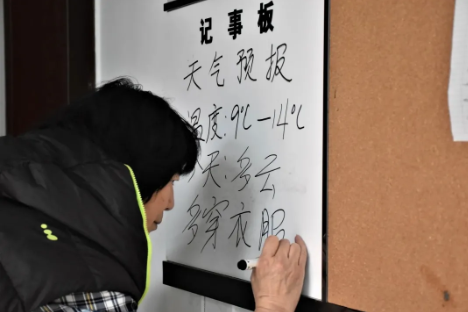 记事板
天气预报
温度:9℃-14℃
天:多云
多穿衣服